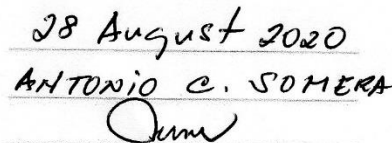 28 August 2020
ANTONIO C. SOMERA